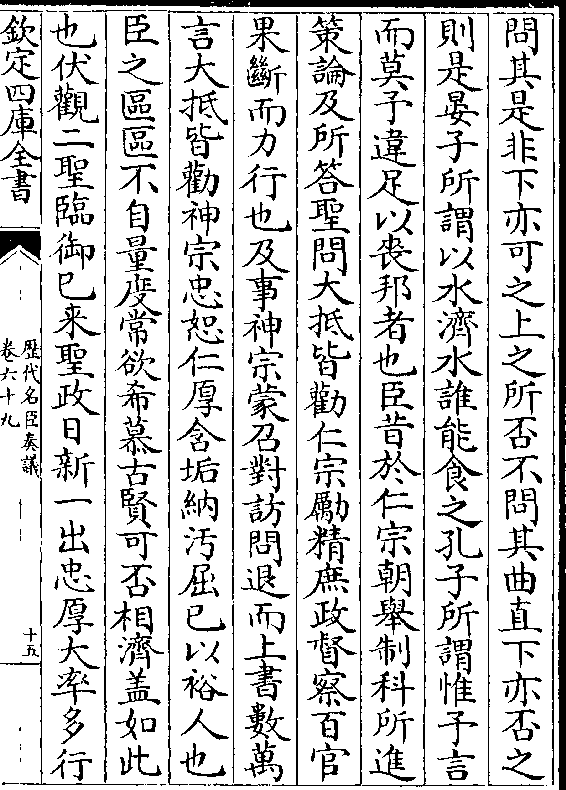 問其是非下亦可之上之所否不問其曲直下亦否之
則是晏子所謂以水濟水誰能食之孔子所謂惟予言
而莫予違足以喪邦者也臣昔於仁宗朝舉制科所進
策論及所答聖問大抵皆勸仁宗勵精庶政督察百官
果斷而力行也及事神宗蒙召對訪問退而上書數萬
言大抵皆勸神宗忠恕仁厚含垢納汚屈已以裕人也
臣之區區不自量度常欲希慕古賢可否相濟盖如此
也伏觀二聖臨御已来聖政日新一出忠厚大率多行
欽定四庫全書
歷代名臣奏議
卷六十九
十五